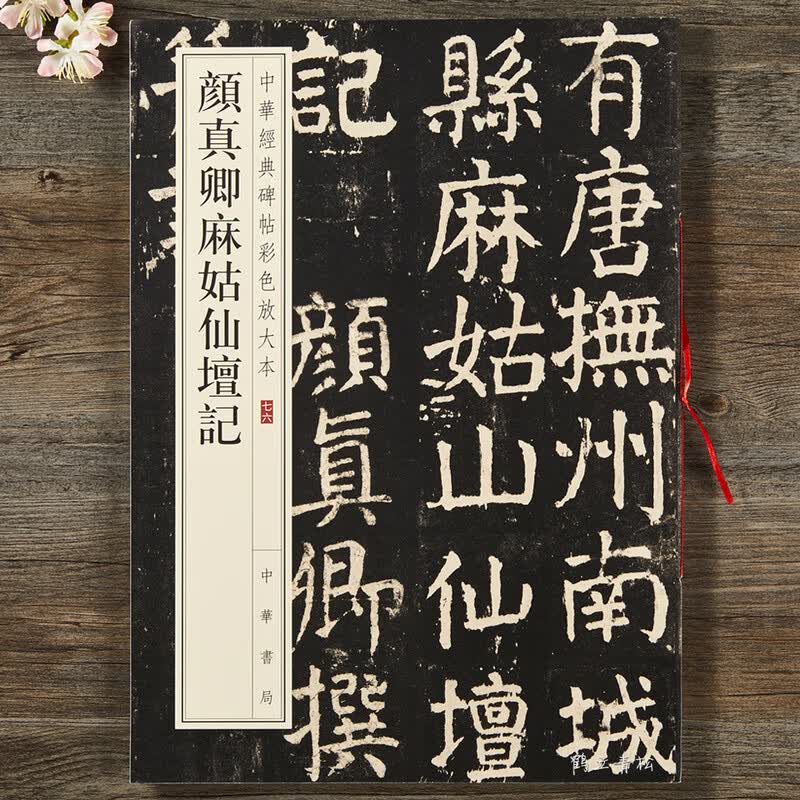 顔真卿麻姑仙壇記
中華經典碑帖彩色放大本
七六
中華書局
有唐撫州南城
縣麻姑山仙壇
記 顔真卿撰
鶴立青松